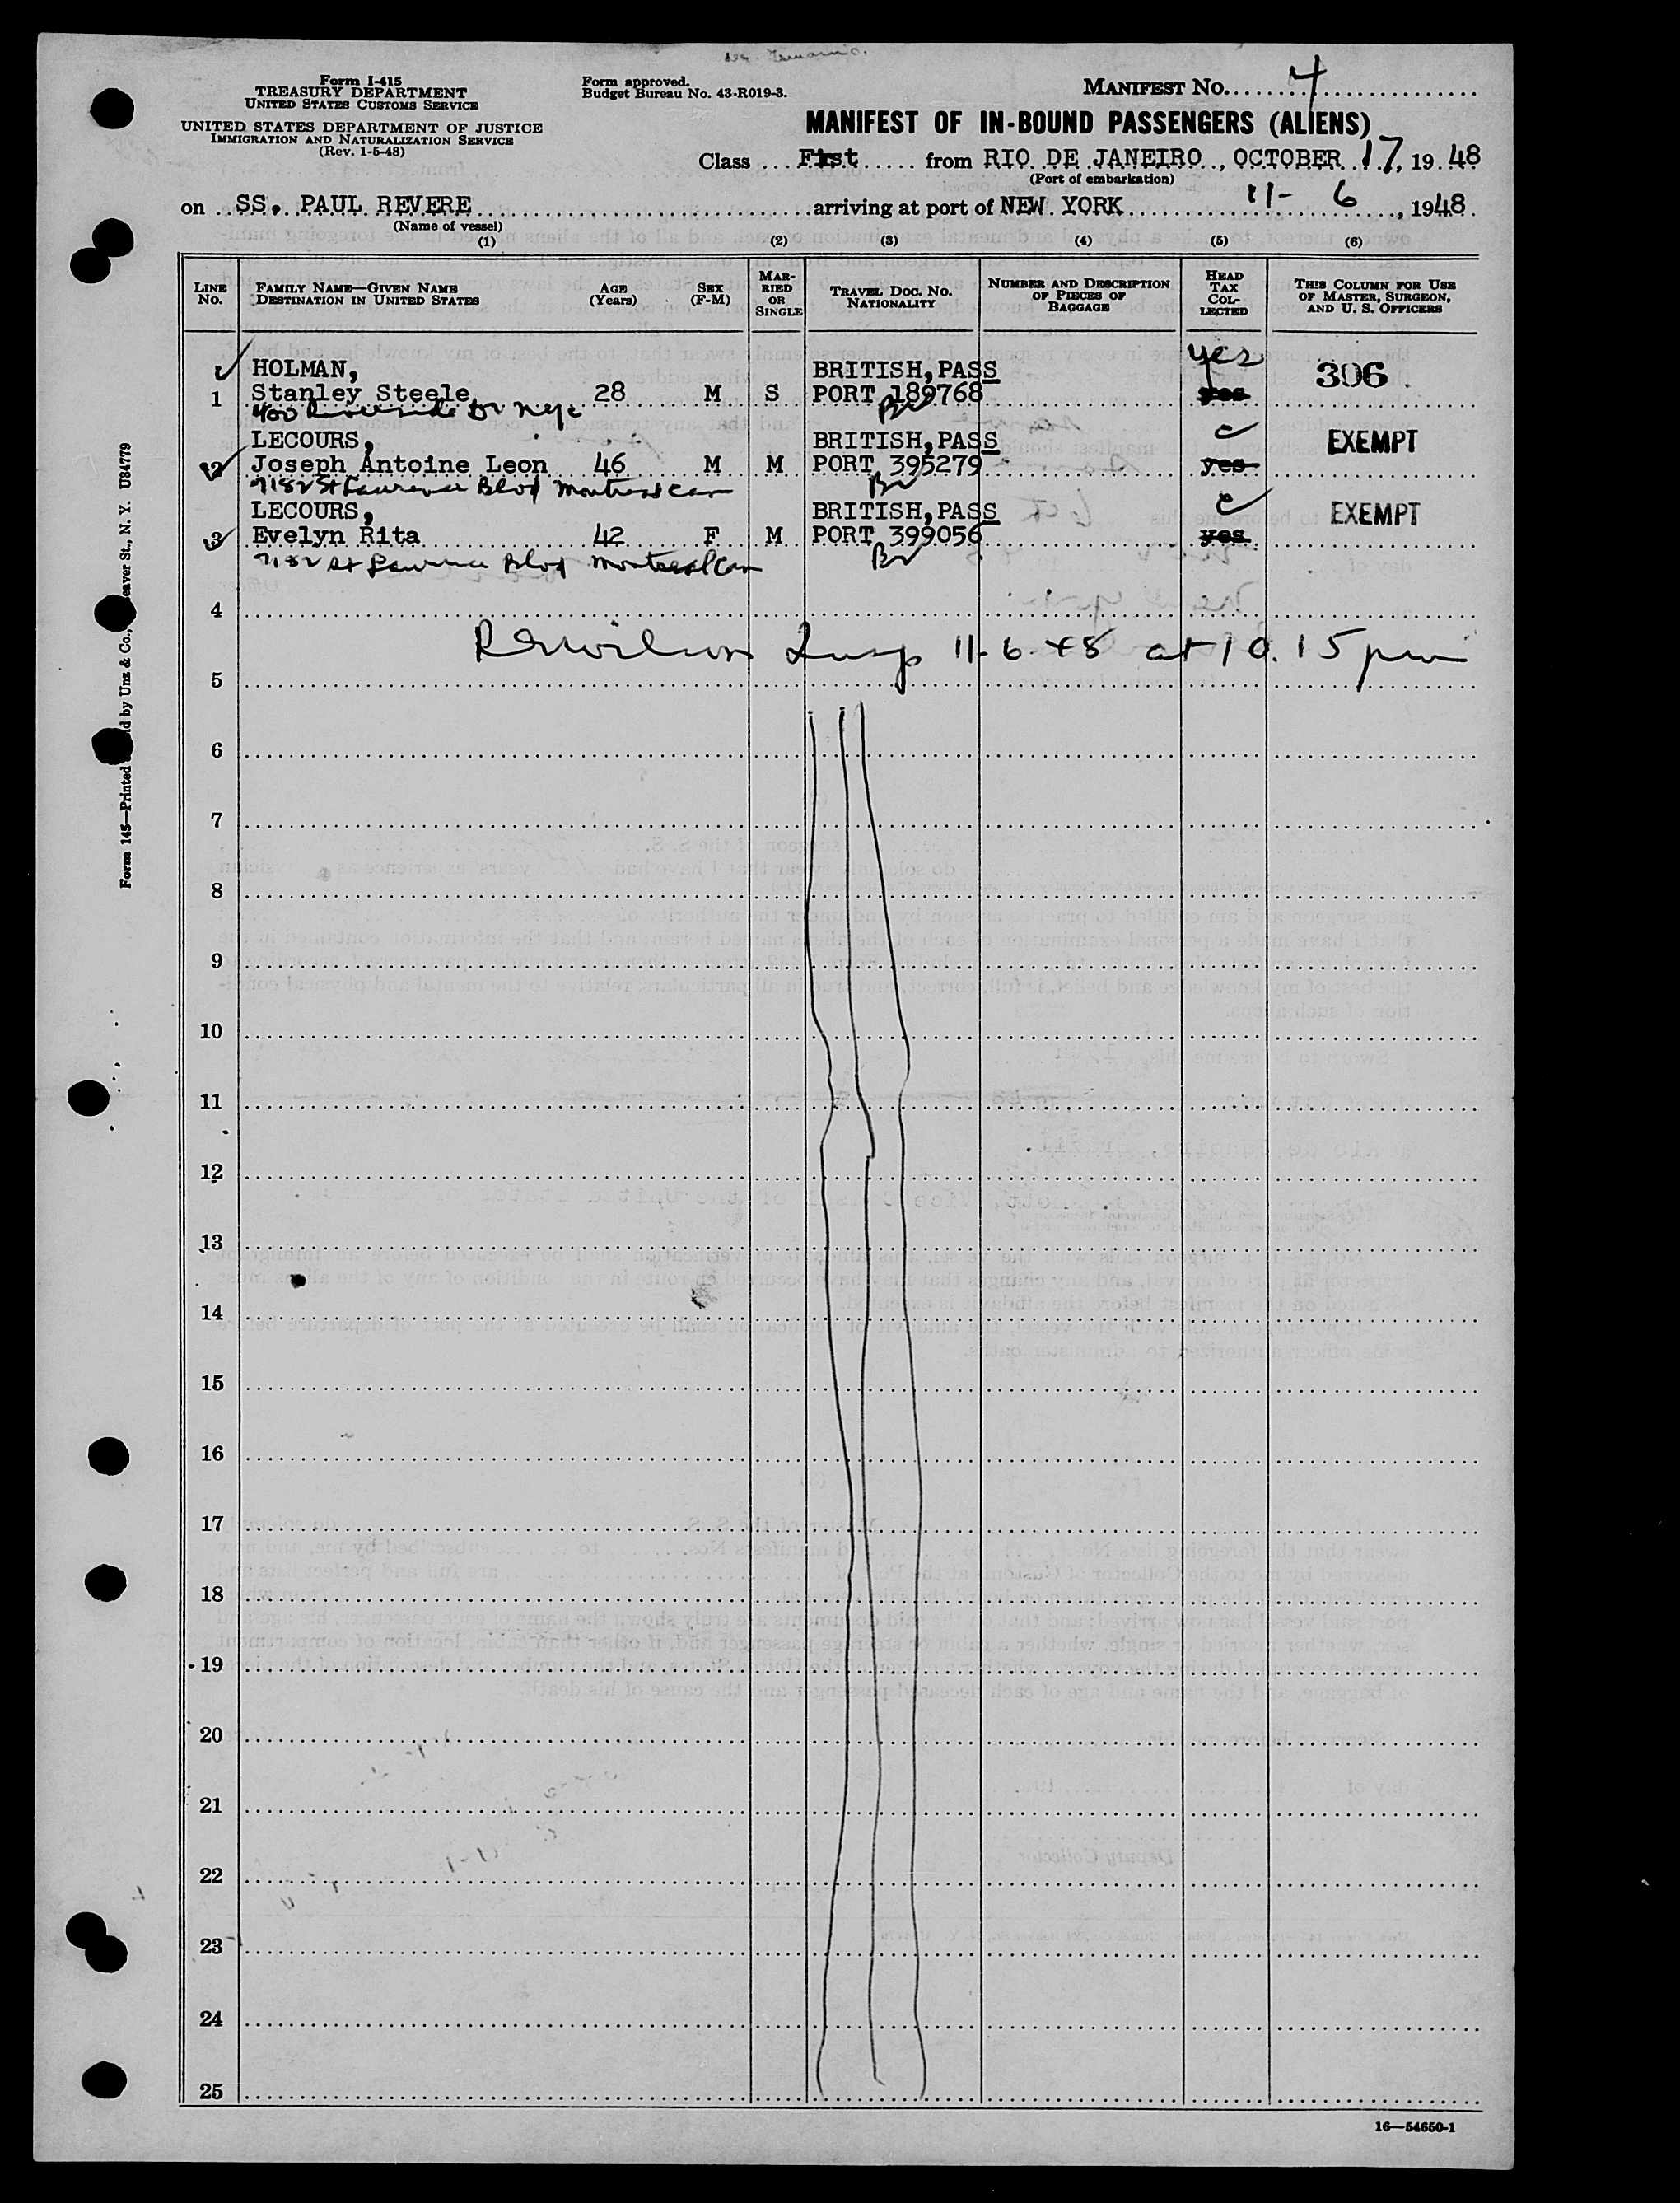 Form I-415
TREASURY DEPARTMENT
UNITED STATES CUSTOMS SERVICE
UNITED STATES DEPARTMENT OF JUSTICE
IMMIGRATION AND NATURALIZATION SERVICE
(Rev. 1-5-48)
Form approved.
Budget Bureau No. 43-R019-3.
MANIFEST No. 4
MANIFEST OF IN-BOUND PASSENGERS (ALIENS)
Class First from RIO DE JANEIRO, OCTOBER 17, 1948
(Port of embarkation)
on SS. PAUL REVERE arriving at port of NEW YORK 11-6, 1948
(Name of vessel)
(1) (2) (3) (4) (5) (6)
LINE No. FAMILY NAME—GIVEN NAME DESTINATION IN UNITED STATES AGE (Years) SEX (F-M) MARRIED OR SINGLE TRAVEL DOC. NO. NATIONALITY NUMBER AND DESCRIPTION OF PIECES OF BAGGAGE HEAD TAX COLLECTED THIS COLUMN FOR USE OF MASTER, SURGEON, AND U. S. OFFICERS
HOLMAN, BRITISH, PASS yes 306
1 Stanley Steele 28 M S PORT 189768 yes
400 Riverside Dr NYC Br
LECOURS, BRITISH, PASS c EXEMPT
2 Joseph Antoine Leon 46 M M PORT 395279 yes
7182 St Lawrence Blvd Montreal Can Br
LECOURS, BRITISH, PASS c EXEMPT
3 Evelyn Rita 42 F M PORT 399056 yes
7182 St Lawrence Blvd Montreal Can Br
4
Insp 11-6-48 at 10.15 pm
5
6
7
8
9
10
11
12
13
14
15
16
17
18
19
20
21
22
23
24
25
16—54650-1
Form 145—Printed by Unz & Co., Beaver St., N. Y. U84779